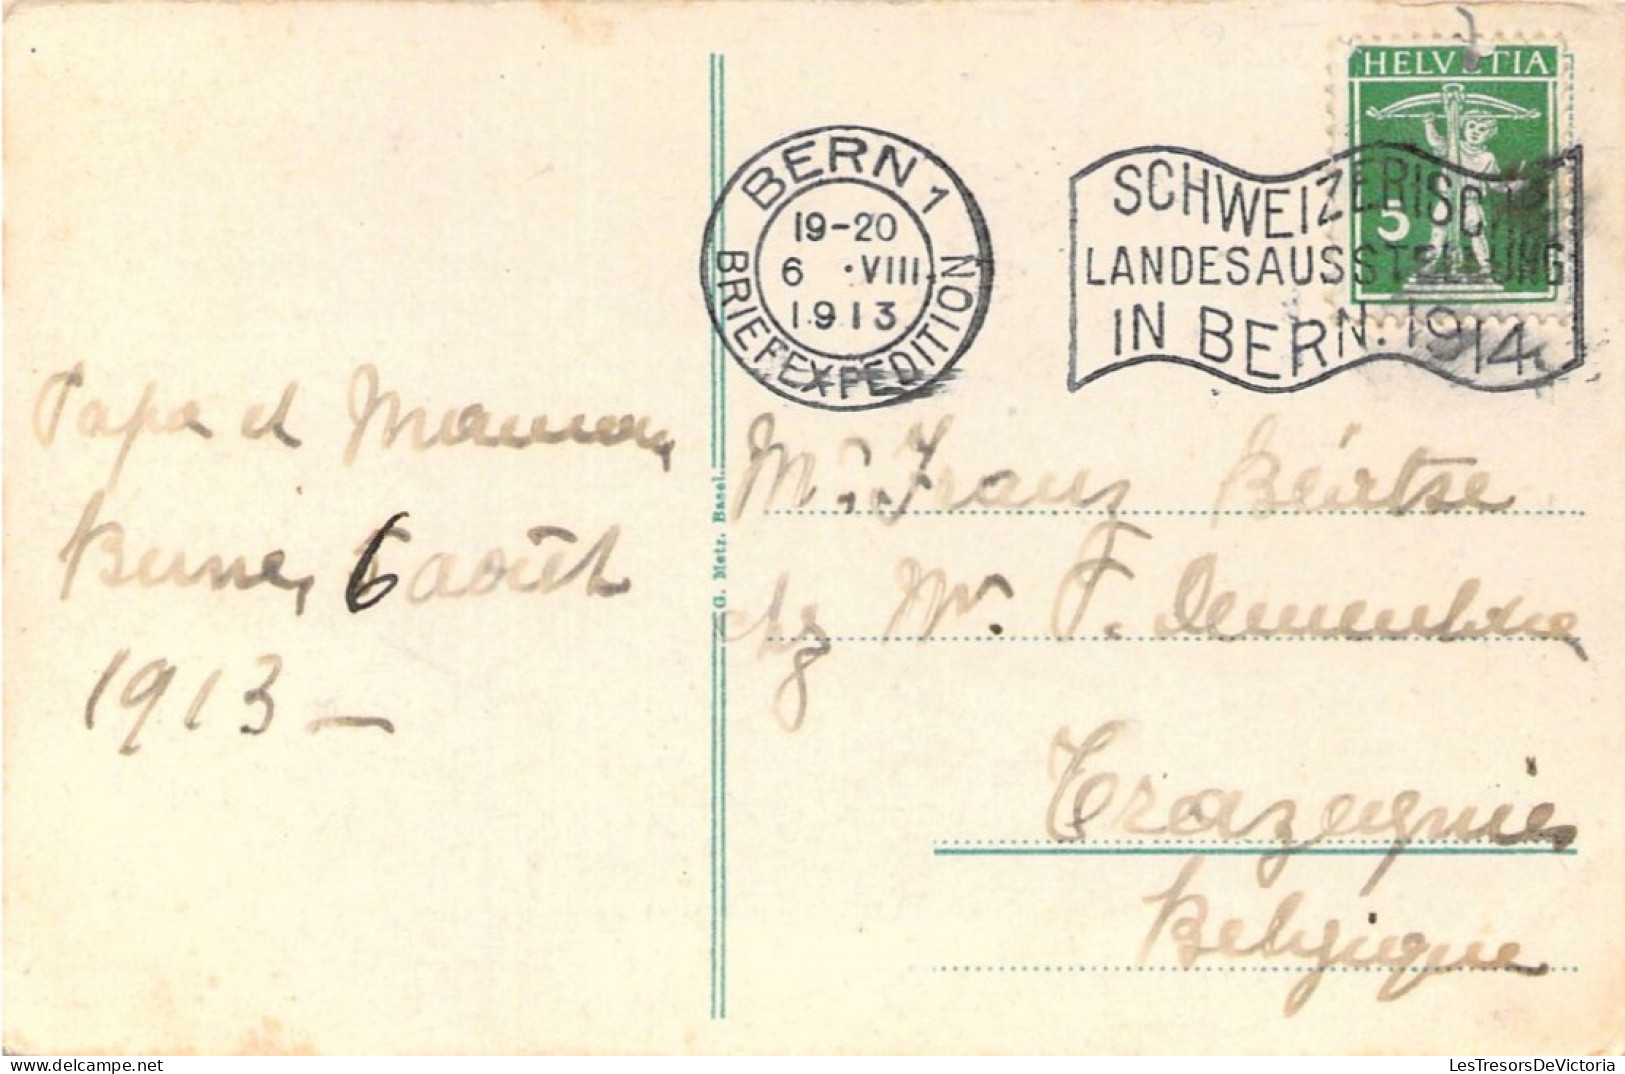 HELVETIA
5
BERN 1
19-20
6 · VIII.
1913
BRIEFEXPEDITION
SCHWEIZERISCHE
LANDESAUSSTELLUNG
IN BERN. 1914.
Papa et Maman
Berne, 6 août
1913 —
G. Metz, Basel.
Mr. Franz
chez Mr. F.
Trazegnies
Belgique
LesTresorsDeVictoria